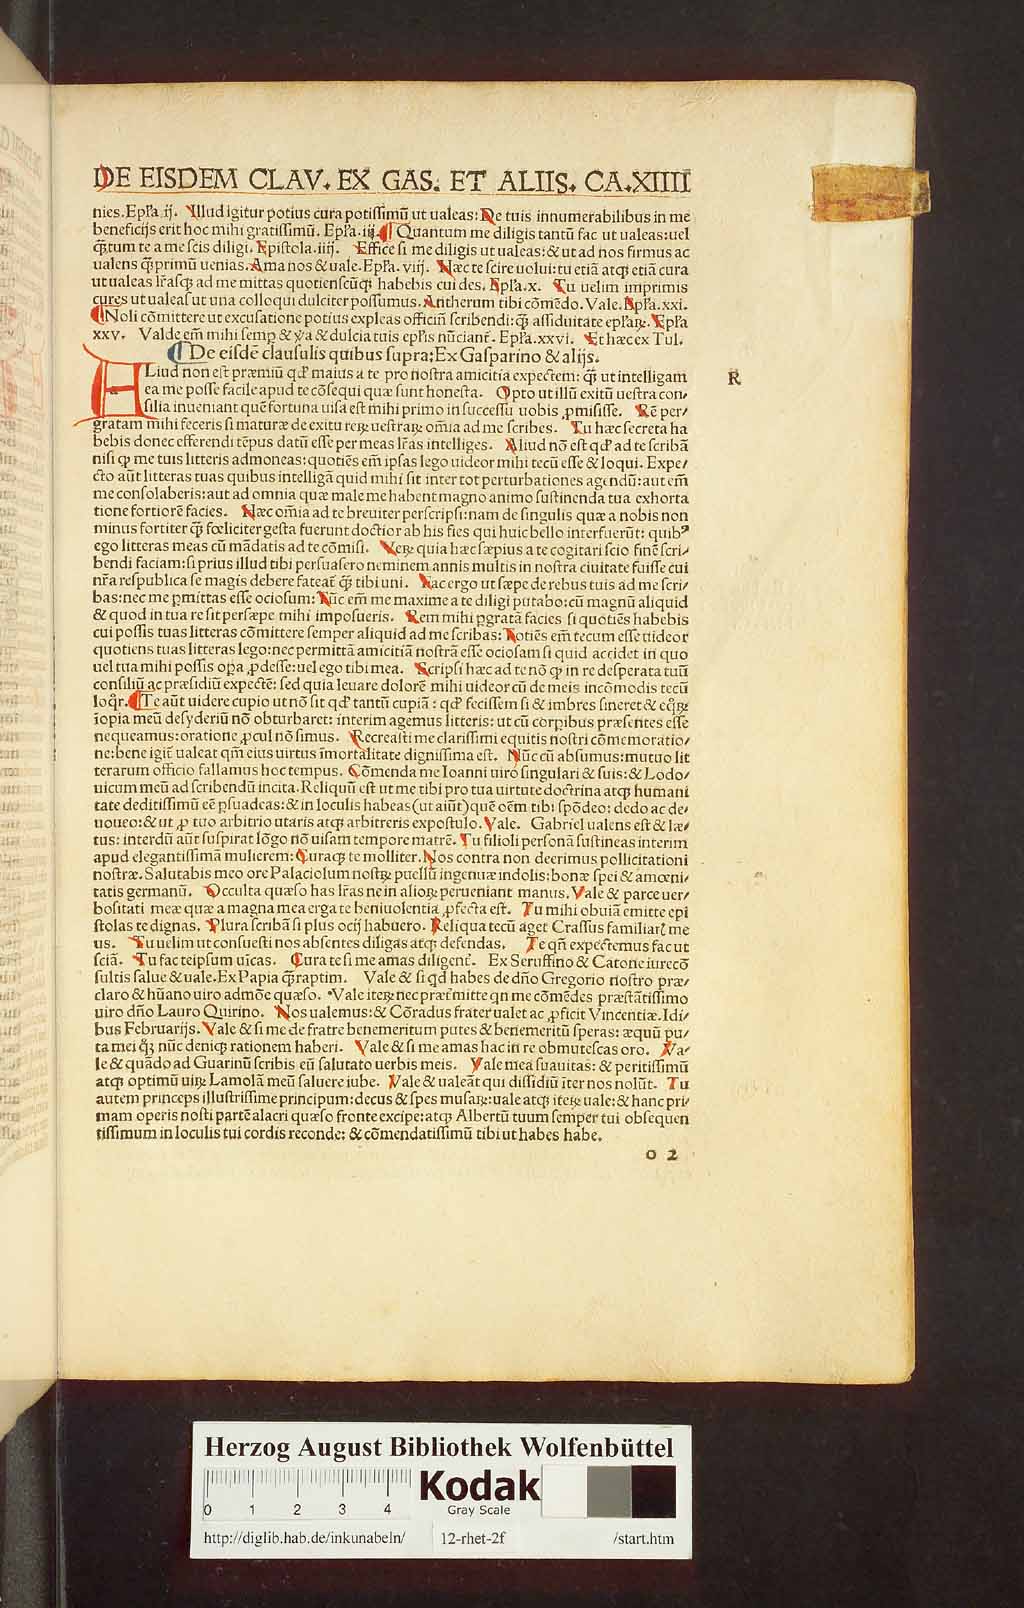 DE EISDEM CLAV. EX GAS. ET ALIIS. CA. XIIII
nies. Epľa. ij. Illud igitur potius cura potissimū ut ualeas: De tuis innumerabilibus in me
beneficijs erit hoc mihi gratissimū. Epľa. iij. ¶ Quantum me diligis tantū fac ut ualeas: uel
q̄tum te a me scis diligi. Epistola. iiij. Effice si me diligis ut ualeas: & ut ad nos firmus ac
ualens q̄primū uenias. Ama nos & uale. Epľa. viij. Hæc te scire uolui: tu etiā atqꝫ etiā cura
ut ualeas lr̄asqꝫ ad me mittas quotienscūqꝫ habebis cui des. Epľa. x. Tu uelim imprimis
cures ut ualeas ut una colloqui dulciter possumus. Antherum tibi cōmēdo. Vale. Epľa. xxi.
¶ Noli cōmittere ut excusatione potius expleas officiū scribendi: q̄ assiduitate epľaꝝ. Epľa
xxv. Valde em̄ mihi semp & ꝟa & dulcia tuis epľis nūciant̄. Epľa. xxvi. Et hæc ex Tul.
¶ De eisdē clausulis quibus supra; Ex Gasparino & alijs.
ALiud non est præmiū qd' maius a te pro nostra amicitia expectem: q̄ ut intelligam
ea me posse facile apud te cōsequi quæ sunt honesta. Opto ut illū exitū uestra con/
silia inueniant quē fortuna uisa est mihi primo in successu uobis ꝓmisisse. Rē per/
gratam mihi feceris si maturæ de exitu reꝝ uestraꝝ om̄ia ad me scribes. Tu hæc secreta ha
bebis donec efferendi tēpus datū esse per meas lr̄as intelliges. Aliud nō est qd' ad te scribā
nisi qꝫ me tuis litteris admoneas: quotiēs em̄ ipsas lego uideor mihi tecū esse & loqui. Expe/
cto aūt litteras tuas quibus intelligā quid mihi sit inter tot perturbationes agendū: aut em̄
me consolaberis: aut ad omnia quæ male me habent magno animo sustinenda tua exhorta
tione fortiorē facies. Hæc om̄ia ad te breuiter perscripsi: nam de singulis quæ a nobis non
minus fortiter q̄ fœliciter gesta fuerunt doctior ab his fies qui huic bello interfuerūt: quibꝰ
ego litteras meas cū mādatis ad te cōmisi. Veꝝ quia hæc sæpius a te cogitari scio finē scri/
bendi faciam: si prius illud tibi persuasero neminem annis multis in nostra ciuitate fuisse cui
nr̄a respublica se magis debere fateat̄ q̄ tibi uni. Fac ergo ut sæpe de rebus tuis ad me scri/
bas: nec me pmittas esse ociosum: Nūc em̄ me maxime a te diligi putabo: cū magnū aliquid
& quod in tua re sit persæpe mihi imposueris. Rem mihi pgratā facies si quotiēs habebis
cui possis tuas litteras cōmittere semper aliquid ad me scribas: Totiēs em̄ tecum esse uideor
quotiens tuas litteras lego: nec permittā amicitiā nostrā esse ociosam si quid accidet in quo
uel tua mihi possis opa ꝓdesse: uel ego tibi mea. Scripsi hæc ad te nō qꝫ in re desperata tuū
consiliū ac præsidiū expectē: sed quia leuare dolorē mihi uideor cū de meis incōmodis tecū
loq̊r. ¶ Te aūt uidere cupio ut nō sit qd' tantū cupiā: qd' fecissem si & imbres sineret & eq̊ꝝ
īopia meū desyderiū nō obturbaret: interim agemus litteris: ut cū corpibus præsentes esse
nequeamus: oratione ꝓcul nō simus. Recreasti me clarissimi equitis nostri cōmemoratio/
ne: bene igit̄ ualeat qm̄ eius uirtus īmortalitate dignissima est. Nūc cū absumus: mutuo lit
terarum officio fallamus hoc tempus. Cōmenda me Ioanni uiro singulari & suis: & Lodo/
uicum meū ad scribendū incita. Reliquū est ut me tibi pro tua uirtute doctrina atqꝫ humani
tate deditissimū eē psuadeas: & in loculis habeas (ut aiūt) quē oēm tibi spōdeo: dedo ac de/
uoueo: & ut ꝓ tuo arbitrio utaris atqꝫ arbitreris expostulo. Vale. Gabriel ualens est & læ/
tus: interdū aūt suspirat lōgo nō uisam tempore matrē. Tu filioli personā sustineas interim
apud elegantissimā mulierem: Curaqꝫ te molliter. Nos contra non deerimus pollicitationi
nostræ. Salutabis meo ore Palaciolum nostꝝ puellū ingenuæ indolis: bonæ spei & amœni/
tatis germanū. Occulta quæso has lr̄as ne in alioꝝ perueniant manus. Vale & parce uer/
bositati meæ quæ a magna mea erga te beniuolentia ꝓfecta est. Tu mihi obuiā emitte epi
stolas te dignas. Plura scribā si plus ocij habuero. Reliqua tecū aget Crassus familiaris me
us. Tu uelim ut consuesti nos absentes diligas atqꝫ defendas. Te qn̄ expectemus fac ut
sciā. Tu fac teipsum uicas. Cura te si me amas diligent̄. Ex Seruffino & Catone iurecō
sultis salue & uale. Ex Papia q̄raptim. Vale & si qd habes de dño Gregorio nostro præ/
claro & hūano uiro admōe quæso. Vale iteꝝ nec præt̄mitte qn me cōmēdes præstātissimo
uiro dño Lauro Quirino. Nos ualemus: & Cōradus frater ualet ac ꝓficit Vincentiæ. Idi/
bus Februarijs. Vale & si me de fratre benemeritum putes & benemeritū speras: æquū pu/
ta mei q̊qꝫ nūc deniqꝫ rationem haberi. Vale & si me amas hac in re obmutescas oro. Va/
le & quādo ad Guarinū scribis eū salutato uerbis meis. Vale mea suauitas: & peritissimū
atqꝫ optimū uiꝝ Lamolā meū saluere iube. Vale & ualeāt qui dissidiū īter nos nolūt. Tu
autem princeps illustrissime principum: decus & spes musaꝝ: uale atqꝫ iteꝝ uale: & hanc pri/
mam operis nosti partē alacri quæso fronte excipe: atqꝫ Albertū tuum semper tui obsequen
tissimum in loculis tui cordis reconde: & cōmendatissimū tibi ut habes habe.
R
o 2
Herzog August Bibliothek Wolfenbüttel
0 1 2 3 4
Kodak
Gray Scale
http://diglib.hab.de/inkunabeln/ 12-rhet-2f /start.htm